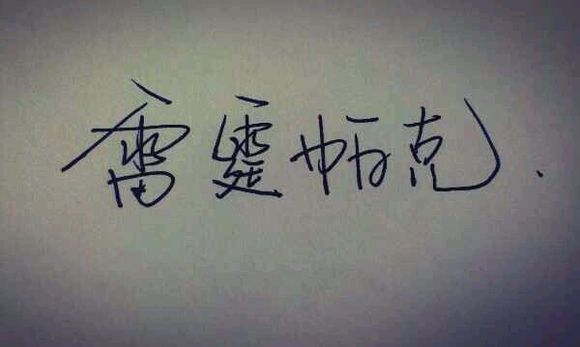 雷霆帕克.